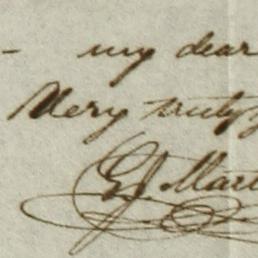 - my dear
Very truly y
G. Mart